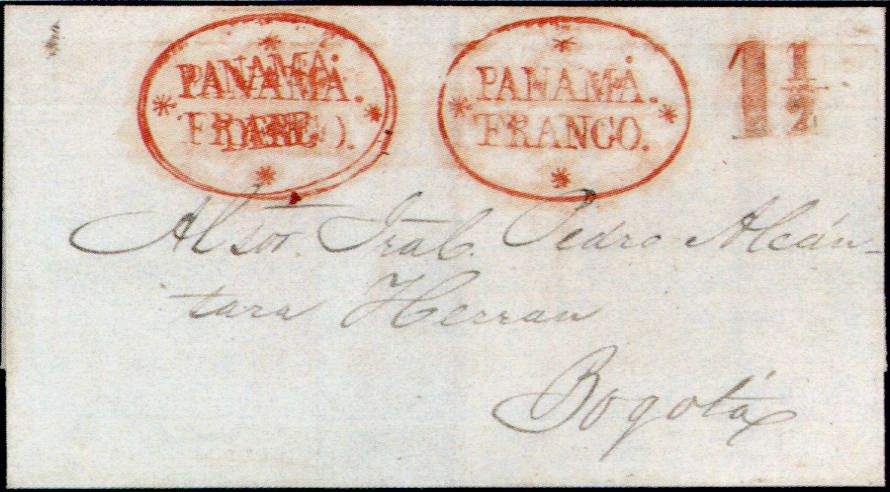 PANAMÁ.
PANAMÁ.
FRANCO.
1 1/2
Al Sor. Gral. Pedro Alcán-
tara Herran
Bogotá